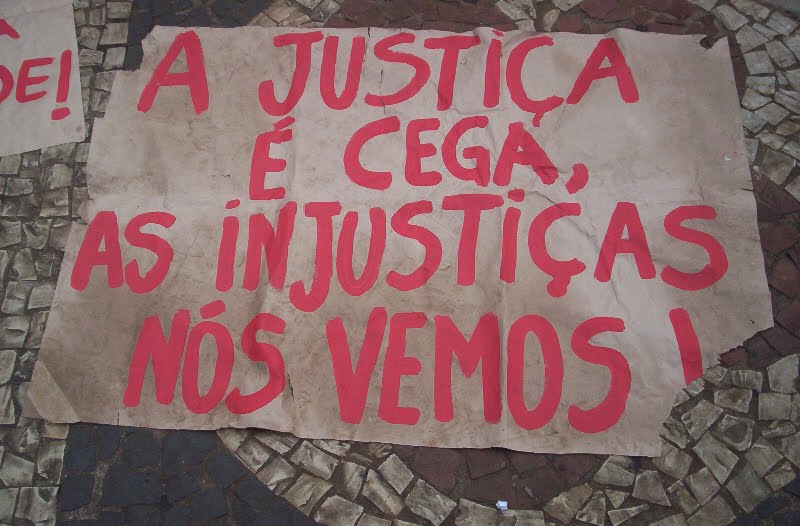 A JUSTIÇA
É CEGA,
AS INJUSTIÇAS
NÓS VEMOS!